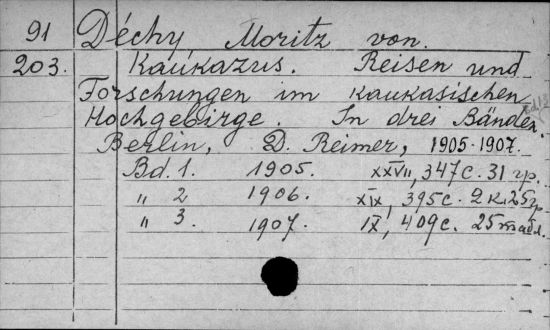 91 Déchy Moritz von.
203. Kaukazus. Reisen und
Forschungen im kaukasischen
Hochgebirge. In drei Bänden.
Berlin, D. Reimer, 1905-1907.
Bd. 1. 1905. XXVII, 347c. 31 гр.
„ 2 1906. XIX, 395c. 2 к. 25гр.
„ 3. 1907. IX, 409c. 25 табл.